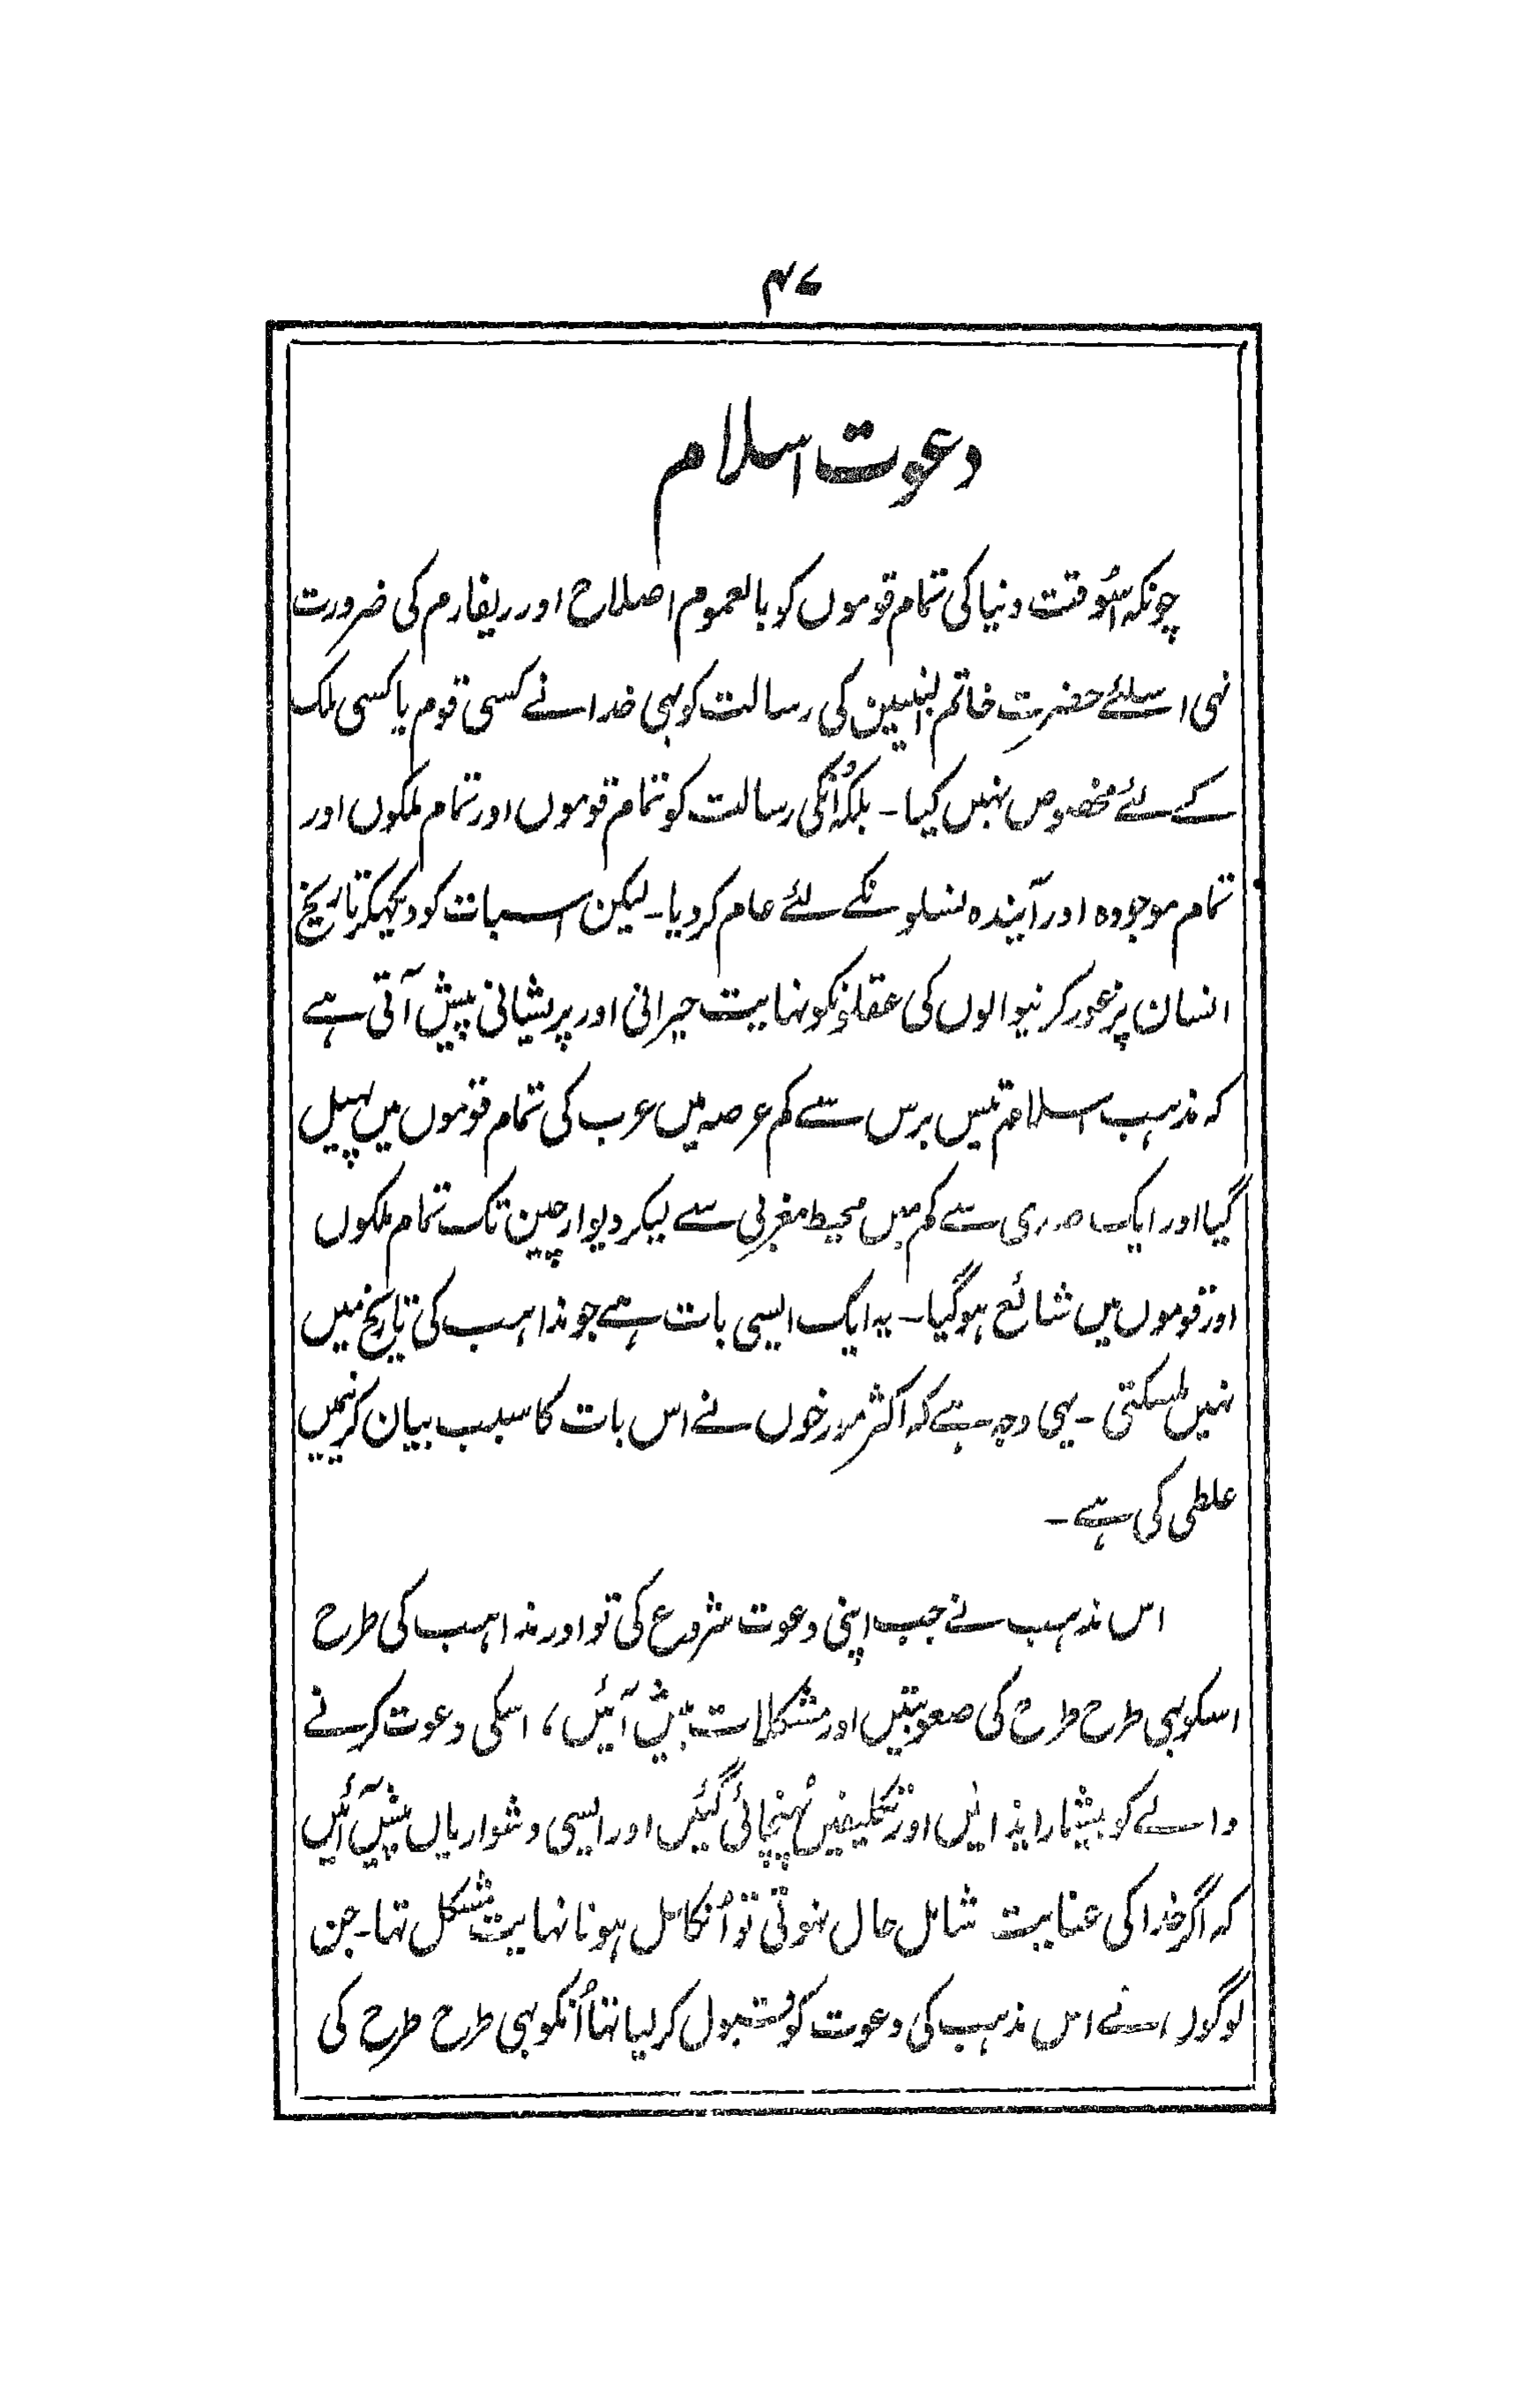 ۴۷
دعوت اسلام
چونکہ اسُوقت دنیا کی تمام قوموں کو بالعموم اصلاح اور ریفارم کی ضرورت
تہی اسلئے حضرت خاتم النبیین کی رسالت کو بہی خدا نے کسی قوم یا کسی ملک
کے لئے مخصوص نہیں کیا ۔ بلکہ اُنکی رسالت کو تمام قوموں اور تمام ملکوں اور
تمام موجودہ اور آیندہ نسلونکے لئے عام کردیا ۔ لیکن اسبات کو دیکہکر تاریخ
انسان پر غور کرنیوالوں کی عقلونکو نہایت حیرانی اور پریشانی پیش آتی ہے
کہ مذہب اسلام تیس برس سے کم عرصہ میں عرب کی تمام قوموں میں پہیل
گیا اور ایک صدی سے کم میں محیط مغربی سے لیکر دیوار چین تک تمام ملکوں
اور قوموں میں شائع ہوگیا ۔ یہ ایک ایسی بات ہے جو مذاہب کی تاریخ میں
نہیں ملسکتی ۔ یہی وجہ ہے کہ اکثر مورخوں نے اس بات کا سبب بیان کرنیمیں
غلطی کی ہے ۔
اس مذہب نے جب اپنی دعوت شروع کی تو اور مذاہب کی طرح
اسکو بہی طرح طرح کی صعوبتیں اور مشکلات پیش آئیں ، اسکی دعوت کرنے
والے کو بیشمار ایذائیں اور تکلیفیں پُہنچائی گئیں اور ایسی دشواریاں پیش آئیں
کہ اگر خدا کی عنایت شامل حال نہوتی تو اُنکا حل ہونا نہایت مشکل تہا ۔ جن
لوگوں نے اس مذہب کی دعوت کو قبول کرلیا تہا اُنکو بہی طرح طرح کی